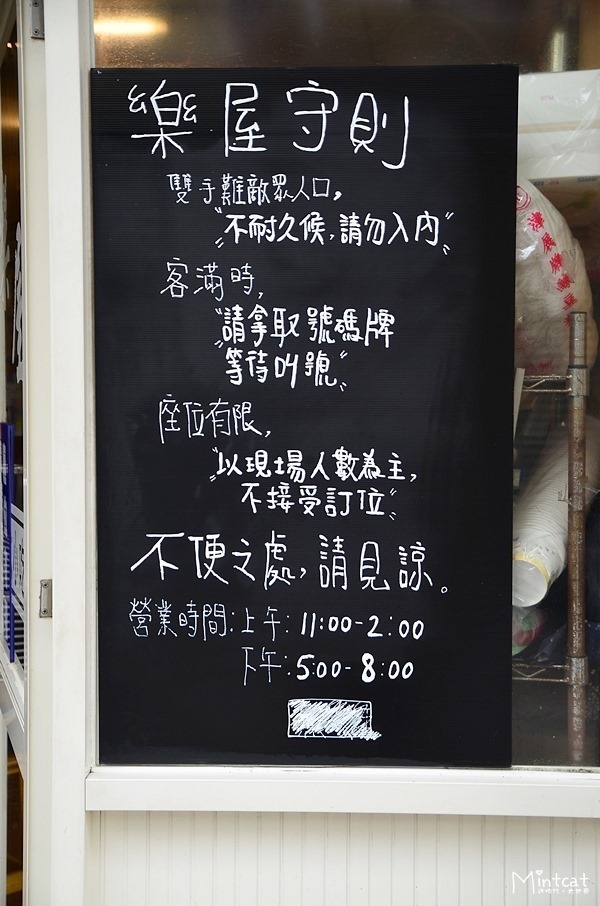 樂屋守則
雙手難敵眾人口，
"不耐久候，請勿入內"
客滿時，
"請拿取號碼牌
等待叫號"
座位有限，
"以現場人數為主，
不接受訂位"
不便之處，請見諒。
營業時間：上午：11:00-2:00
下午：5:00-8:00
Mintcat